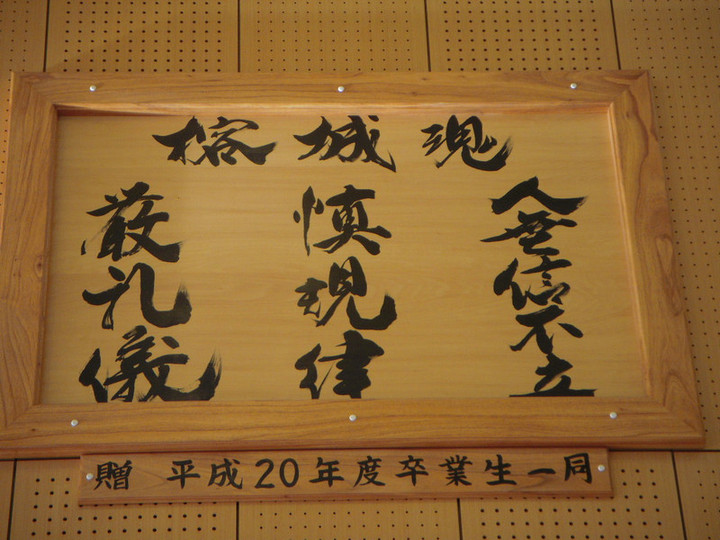 榕城魂
人無信不立
慎規律
厳礼儀
贈 平成20年度卒業生一同